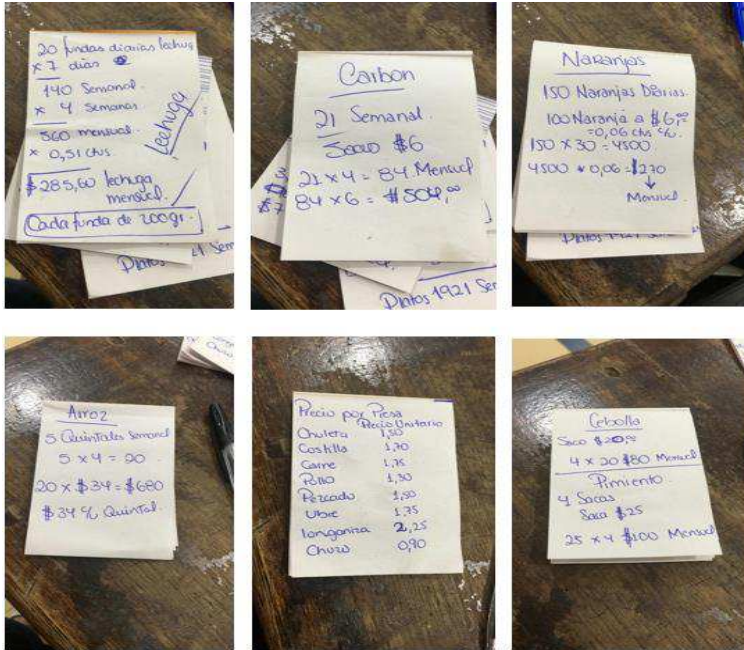 20 fundas diarias lechuga
x 7 dias
140 Semanal.
x 4 Semanas
560 mensual.
x 0,51 ctvs.
$285,60 lechuga
mensual.
Lechuga
Cada funda de 200gr.
Platos 1921 Sem
Carbon
21 Semanal.
Saco $6
21 x 4 = 84 Mensual
84 x 6 = $504,00
Platos 1921 Ser
Naranjas
150 Naranjas Diarias.
100 Naranja a $6,00
=0,06 ctvs c/u.
150 x 30 = 4500.
4500 x 0,06 = $270
Mensual.
Platos 1921
Arroz
5 Quintales Semanal
5 x 4 = 20
20 x $34 = $680
$34 c/u Quintal.
Precio por Presa
Precio Unitario
Chuleta 1,50
Costilla 1,70
Carne 1,75
Pollo 1,30
Pezcado 1,50
Ubre 1,75
longaniza 2,25
Chuzo 0,90
Cebolla
Saco $20,00
4 x 20 $80 Mensual
Pimiento.
4 Sacas
Saca $25
25 x 4 $100 Mensual